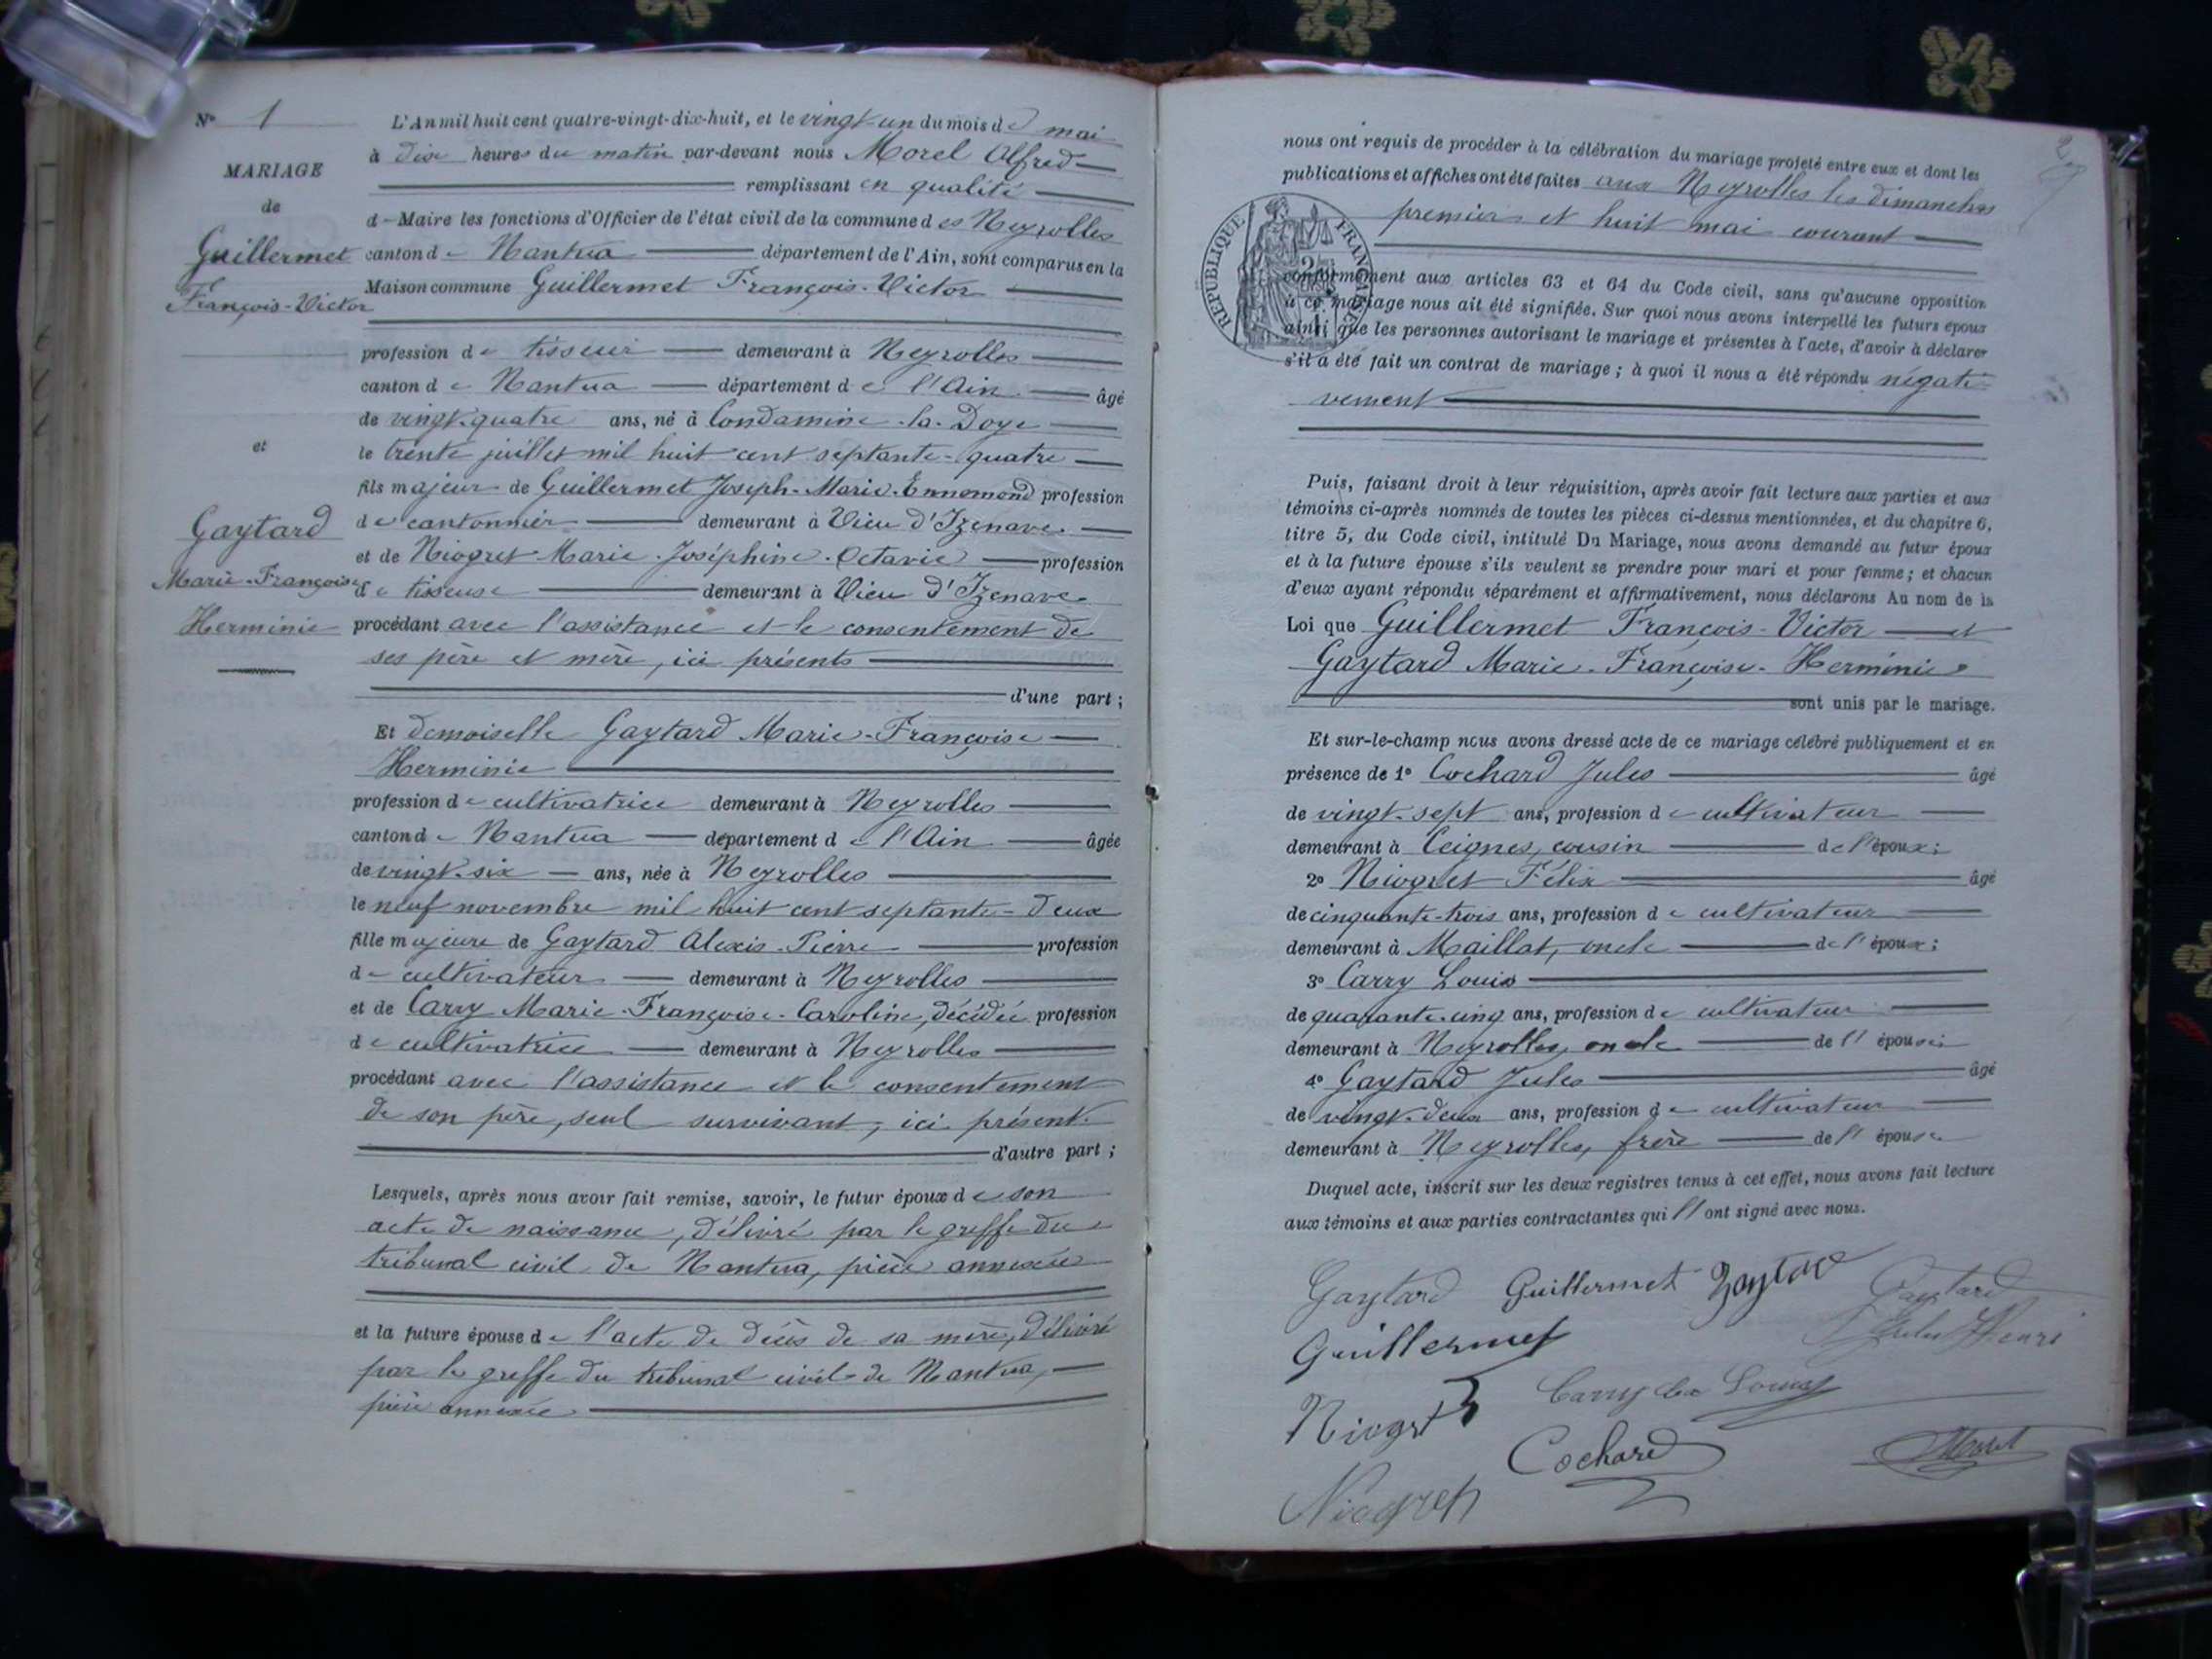 N° 1
MARIAGE
de
Guillermet
François-Victor
et
Gaytard
Marie-Françoise
Herminie
L'An mil huit cent quatre-vingt-dix-huit, et le vingt-un du mois de mai
à dix heures du matin par-devant nous Morel Alfred
remplissant en qualité
d Maire les fonctions d'Officier de l'état civil de la commune des Neyrolles
canton de Nantua département de l'Ain, sont comparus en la
Maison commune Guillermet François-Victor
profession de tisseur demeurant à Neyrolles
canton de Nantua département de l'Ain âgé
de vingt-quatre ans, né à Condamine-la-Doye
le trente juillet mil huit cent septante-quatre
fils majeur de Guillermet Joseph-Marie-Ennemond profession
de cantonnier demeurant à Vieu d'Izenave
et de Niogret Marie-Joséphine-Octavie profession
de tisseuse demeurant à Vieu d'Izenave
procédant avec l'assistance et le consentement de
ses père et mère, ici présents
d'une part ;
Et demoiselle Gaytard Marie-Françoise
Herminie
profession de cultivatrice demeurant à Neyrolles
canton de Nantua département de l'Ain âgée
de vingt-six ans, née à Neyrolles
le neuf novembre mil huit cent septante-deux
fille majeure de Gaytard Alexis-Pierre profession
de cultivateur demeurant à Neyrolles
et de Carry Marie-Françoise-Caroline, décédée profession
de cultivatrice demeurant à Neyrolles
procédant avec l'assistance et le consentement
de son père, seul survivant, ici présent.
d'autre part ;
Lesquels, après nous avoir fait remise, savoir, le futur époux de son
acte de naissance, délivré par le greffe du
tribunal civil de Nantua, pièce annexée
et la future épouse de l'acte de décès de sa mère, délivré
par le greffe du tribunal civil de Nantua,
pièce annexée.
2
nous ont requis de procéder à la célébration du mariage projeté entre eux et dont les
publications et affiches ont été faites aux Neyrolles les dimanches
premier et huit mai courant
RÉPUBLIQUE FRANÇAISE
conformément aux articles 63 et 64 du Code civil, sans qu'aucune opposition
à ce mariage nous ait été signifiée. Sur quoi nous avons interpellé les futurs époux
ainsi que les personnes autorisant le mariage et présentes à l'acte, d'avoir à déclarer
s'il a été fait un contrat de mariage ; à quoi il nous a été répondu négati-
vement
Puis, faisant droit à leur réquisition, après avoir fait lecture aux parties et aux
témoins ci-après nommés de toutes les pièces ci-dessus mentionnées, et du chapitre 6,
titre 5, du Code civil, intitulé Du Mariage, nous avons demandé au futur époux
et à la future épouse s'ils veulent se prendre pour mari et pour femme ; et chacun
d'eux ayant répondu séparément et affirmativement, nous déclarons Au nom de la
Loi que Guillermet François-Victor et
Gaytard Marie-Françoise-Herminie
sont unis par le mariage.
Et sur-le-champ nous avons dressé acte de ce mariage célébré publiquement et en
présence de 1° Cochard Jules âgé
de vingt-sept ans, profession de cultivateur
demeurant à Ceignes, cousin de l'époux ;
2° Niogret Félix âgé
de cinquante-trois ans, profession de cultivateur
demeurant à Maillat, oncle de l'époux ;
3° Carry Louis
de quarante-cinq ans, profession de cultivateur
demeurant à Neyrolles, oncle de l'épouse ;
4° Gaytard Jules âgé
de vingt-deux ans, profession de cultivateur
demeurant à Neyrolles, frère de l'épouse
Duquel acte, inscrit sur les deux registres tenus à cet effet, nous avons fait lecture
aux témoins et aux parties contractantes qui l'ont signé avec nous.
Gaytard Guillermet Gaytard Gaytard
Jules Henri
Guillermet
Carry Louis
Niogret
Cochard Morel
Niogret